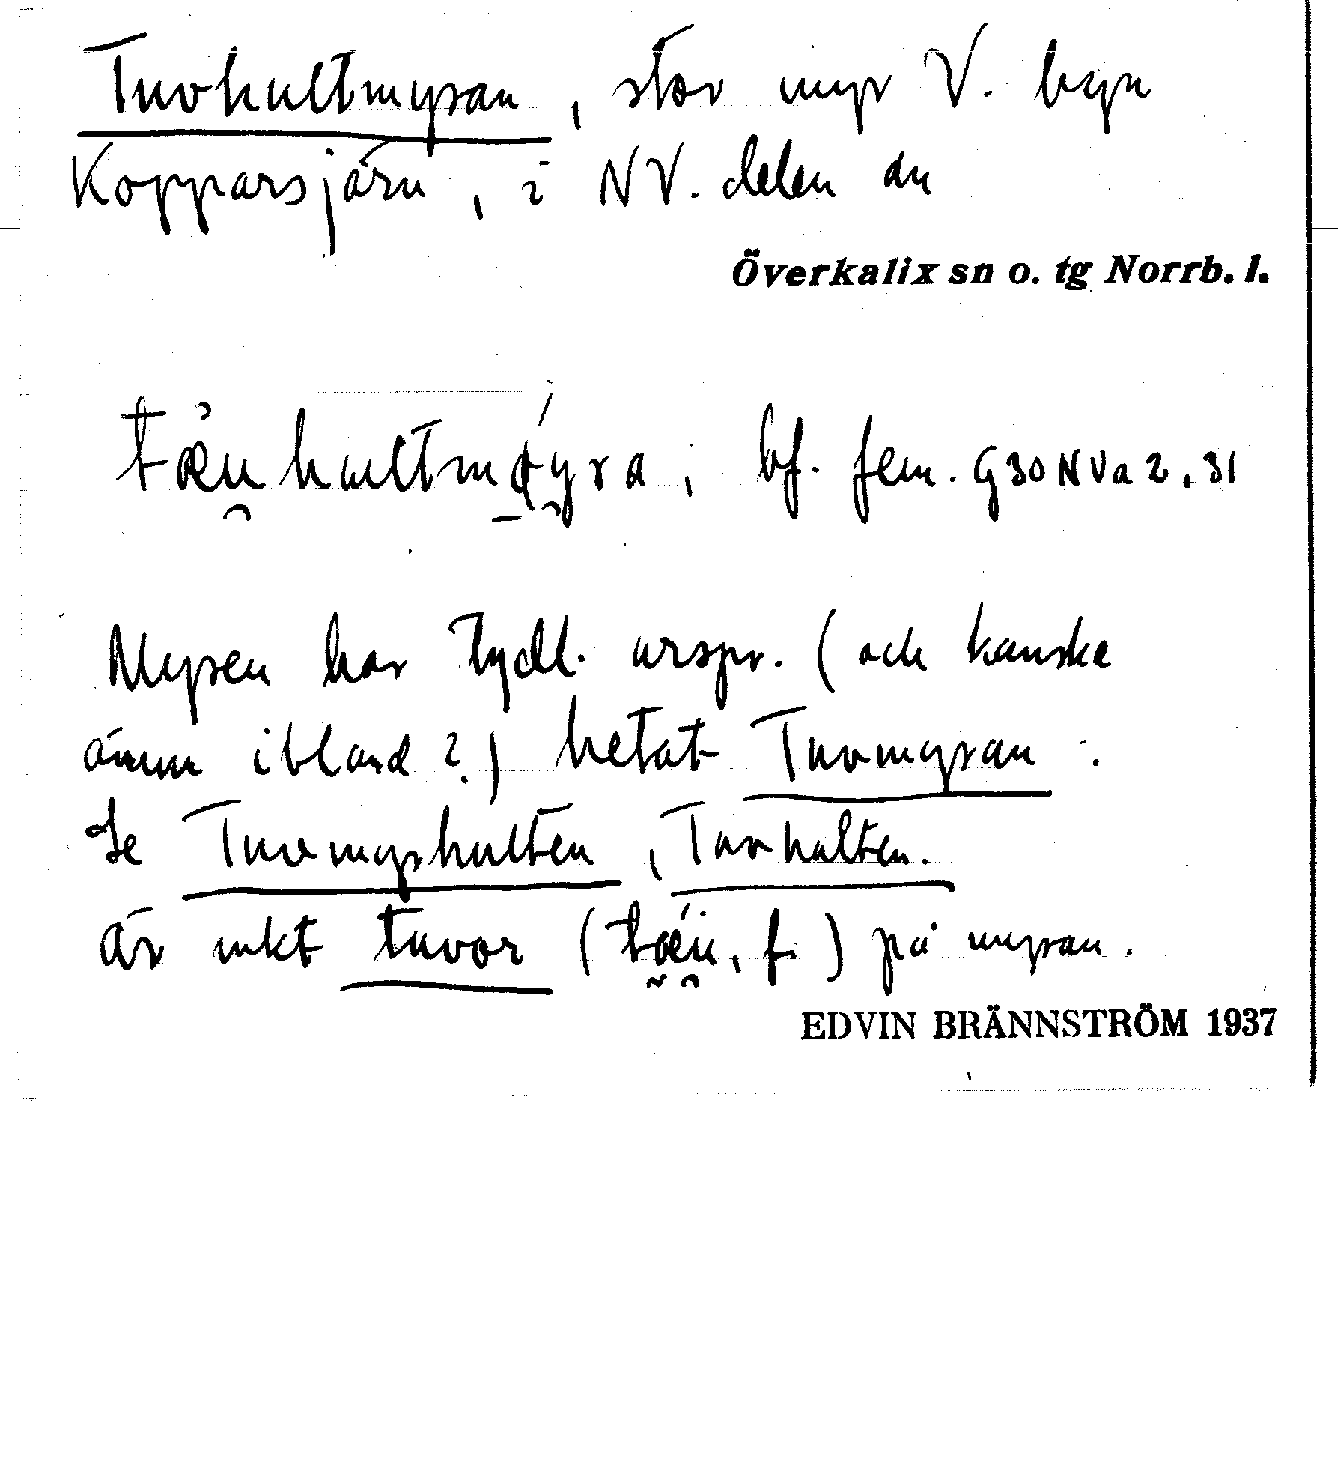 Tuvhultmyran, stor myr V. byn
Kopparsjärn, i NV. delen av
Överkalix sn o. tg Norrb. l.
bf. fem. G30NVa2.31
Myren har tydl. urspr. (och kanske
ännu ibland?) hetat Tuvmyran.
Se Tuvmyrhulten, Tuvhulten.
Är mkt tuvor (tæu, f.) på myran.
EDVIN BRÄNNSTRÖM 1937